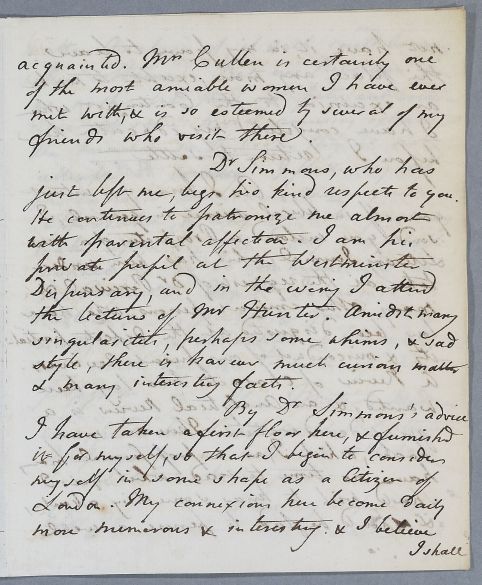 acquainted. Mrs Cullen is certainly one
of the most amiable women I have ever
met with, & is so esteemed by several of my
friends who visit there.
Dr Simmons, who has
just left me, begs his kind respects to you.
He continues to patronize me almost
with parental affection. I am his
private pupil at the Westminster
Dispensary, and in the evening I attend
the lectures of Mr Hunter. Amidst many
singularities, perhaps some whims, & sad
style, there is however much curious matter
& many interesting facts.
By Dr Simmons's advice
I have taken a first floor here, & furnish'd
it for myself, so that I begin to consider
myself in some shape as a Citizen of
London My connexions here become Daily
more numerous & interesting. & I believe
I shall